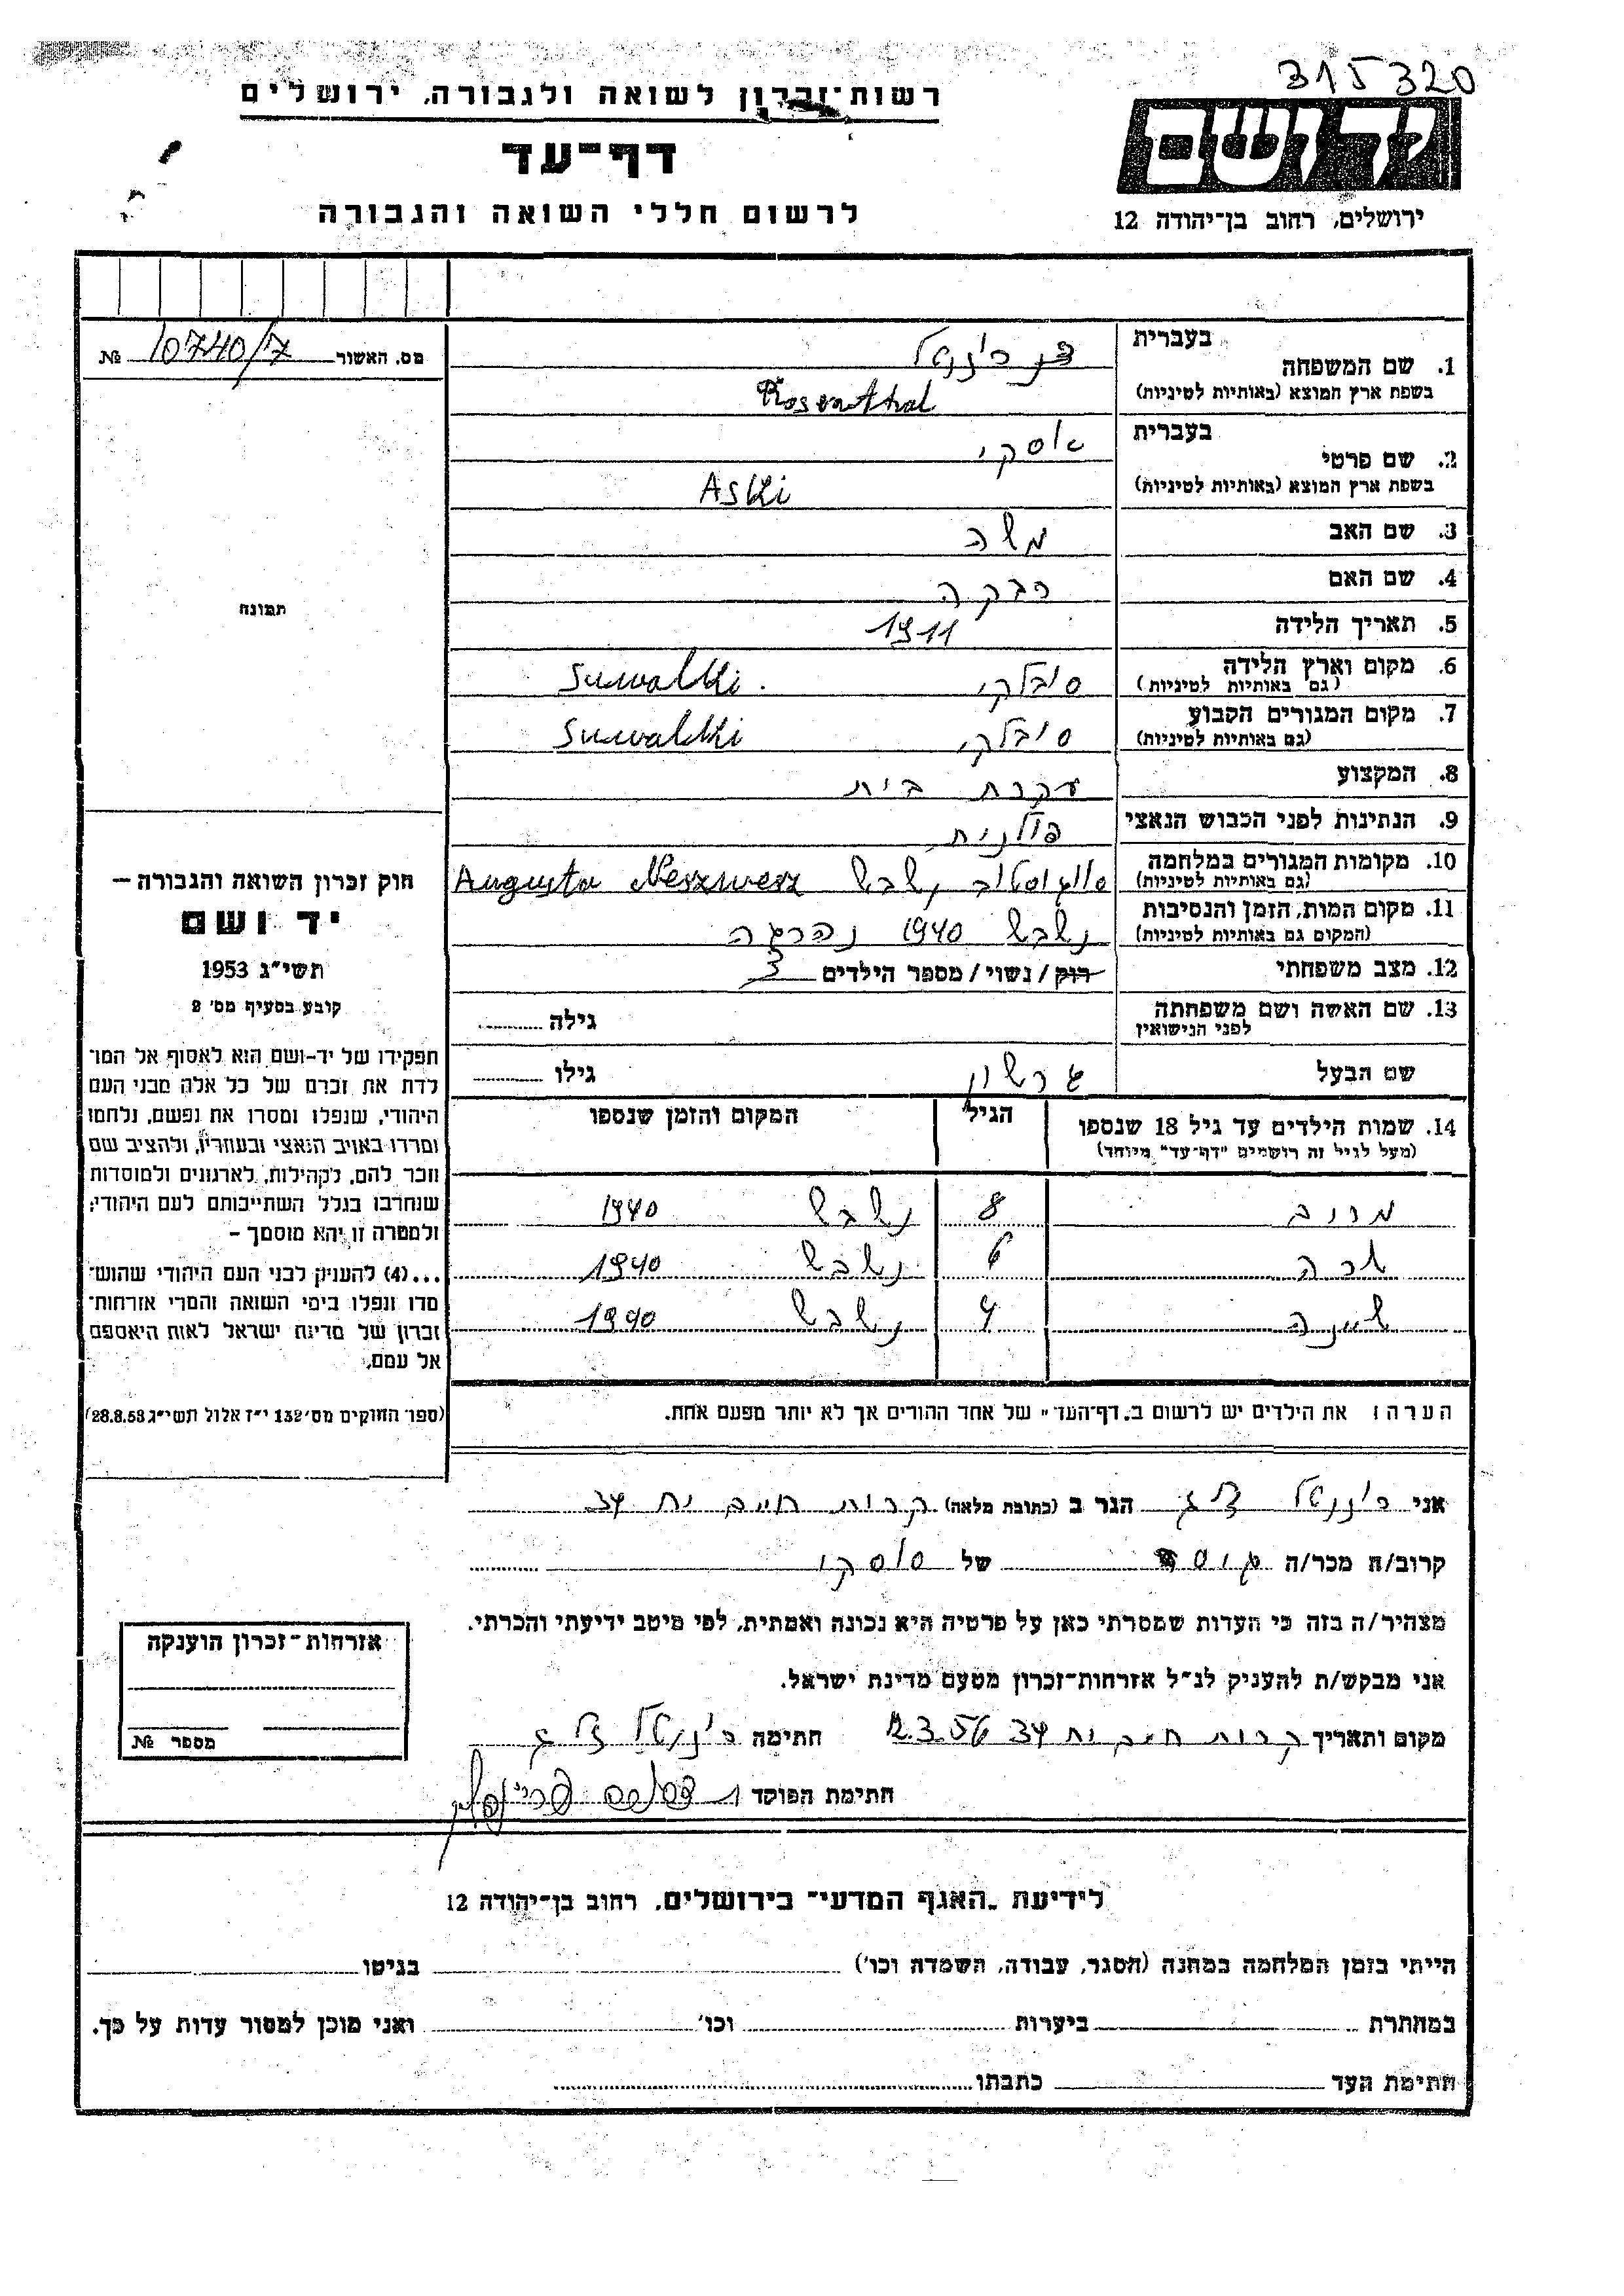 315320
רשות־זכרון לשואה ולגבורה, ירושלים
דף־עד
לרשום חללי השואה והגבורה
ידושם
ירושלים, רחוב בן־יהודה 12
מס. האשור 10740/7 №
תמונה
בעברית
1. שם המשפחה
(בשפת ארץ המוצא (באותיות לטיניות
Rosenthal
בעברית
2. שם פרטי אסקי
(בשפת ארץ המוצא (באותיות לטיניות
Aski
3. שם האב משה
4. שם האם רבקה
5. תאריך הלידה 1911
6. מקום וארץ הלידה סובלקי Suwalki
(גם באותיות לטיניות)
7. מקום המגורים הקבוע סובלקי Suwalki
(גם באותיות לטיניות)
8. המקצוע עקרת בית
9. הנתינות לפני הכבוש הנאצי פולנית
10. מקומות המגורים במלחמה
(גם באותיות לטיניות)
11. מקום המות, הזמן והנסיבות 1940 נהרגה
(המקום גם באותיות לטיניות)
12. מצב משפחתי רוק / נשוי / מספר הילדים 3
13. שם האשה ושם משפחתה גילה
לפני הנישואין
שם הבעל גרשון גילו
14. שמות הילדים עד גיל 18 שנספו הגיל המקום והזמן שנספו
(מעל לגיל זה רושמים "דף־עד" מיוחד)
8 1940
6 1940
4 1940
הערה: את הילדים יש לרשום ב„דף־העד" של אחד ההורים אך לא יותר מפעם אחת.
חוק זכרון השואה והגבורה —
יד ושם
תשי"ג 1953
קובע בסעיף מס' 2
תפקידו של יד-ושם הוא לאסוף אל המו־
לדת את זכרם של כל אלה מבני העם
היהודי, שנפלו ומסרו את נפשם, נלחמו
ומרדו באויב הנאצי ובעוזריו, ולהציב שם
וזכר להם, לקהילות, לארגונים ולמוסדות
שנחרבו בגלל השתייכותם לעם היהודי;
ולמטרה זו יהא מוסמך —
...(4) להעניק לבני העם היהודי שהוש־
מדו ונפלו בימי השואה והמרי אזרחות־
זכרון של מדינת ישראל לאות היאספם
אל עמם.
(ספר החוקים מס' 132 י"ז אלול תשי"ג 28.8.53)
אני הגר ב (כתובת מלאה) קרית חיים
קרוב/ה מכר/ה גיסה של אסקי
מצהיר/ה בזה כי העדות שמסרתי כאן על פרטיה היא נכונה ואמתית, לפי מיטב ידיעתי והכרתי.
אני מבקש/ת להעניק לנ"ל אזרחות־זכרון מטעם מדינת ישראל.
מקום ותאריך קרית חיים 12.3.56 חתימה
חתימת הפוקד
אזרחות־זכרון הוענקה
מספר №
לידיעת „האגף המדעי" בירושלים, רחוב בן־יהודה 12
הייתי בזמן המלחמה במחנה (הסגר, עבודה, השמדה וכו') בגיטו
במחתרת ביערות וכו' ואני מוכן למסור עדות על כך.
חתימת העד כתבתו